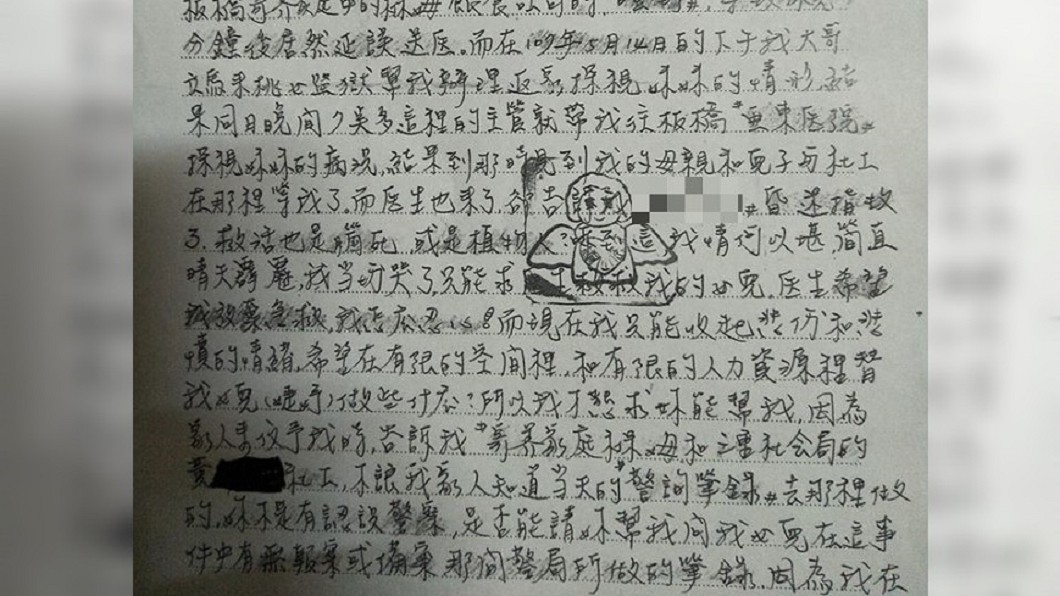 板橋寄養家庭中的保母
分鐘後居然延誤送医。而在109年5月14日的下午我大哥
立馬來桃女監獄幫我辦理返家探視妹妹的情形,結
果同日晚間7奌多這裡的主管就帶我往板橋"亜東医院"
探視妹妹的病況,結果到那時見到我的母親和兒子与社工
在那裡等我了。而医生也來了,都告訴我 昏迷指数
3.救活也是腦死,或是植物人?听到這我情何以堪,簡直
晴天霹靂,我当場哭了,只能求医生救救我的女兒,医生希望
我放棄急救,我怎么忍心!而現在我只能收起悲伤和悲
憤的情緒,希望在有限的空间裡,和有限的人力資源裡替
我女兒 做些什麼?所以我才想求妳能幫我,因為
家人來仪予我時,告訴我"寄养家庭保母和三重社会局的
黃 社工,不讓我家人知道当天的"警詢筆錄"去那裡做
的,妳不是有認識警察,是否能請妳幫我问我女兒在這事
件中有無報案或備案那间警局所做的筆錄,因為我在